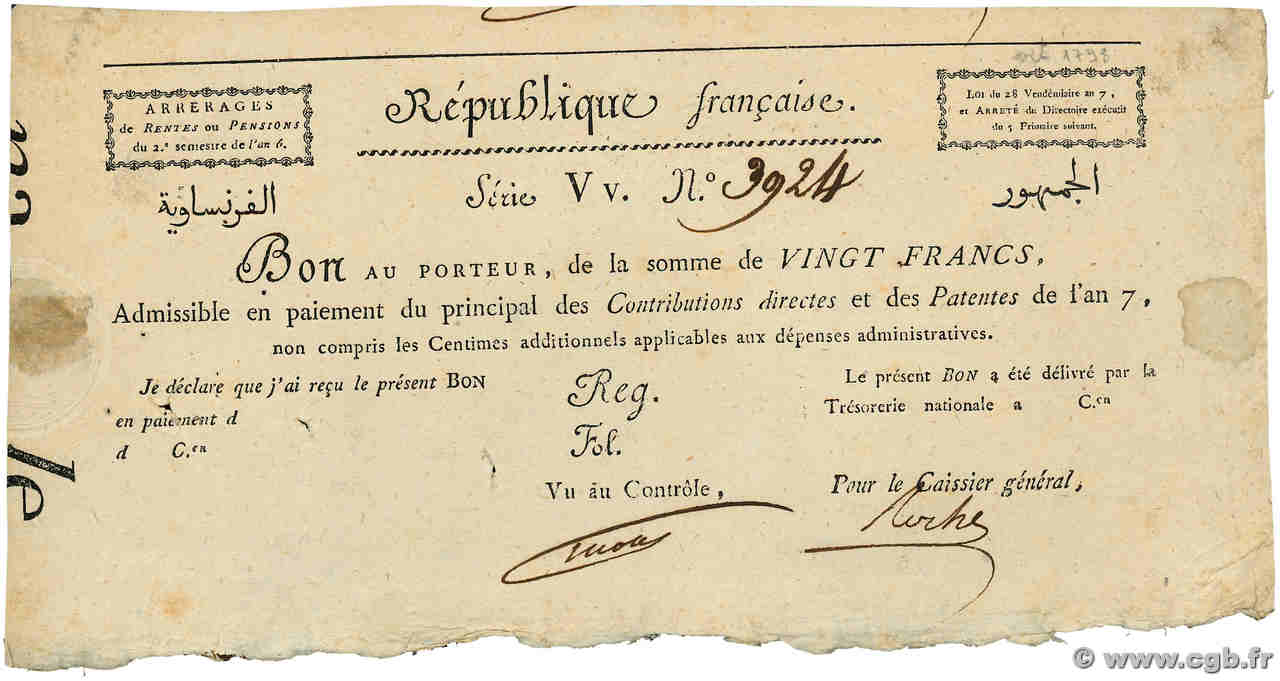 ARRERAGES
de RENTES ou PENSIONS
du 2.e semestre de l'an 6.
République française.
LOI du 28 Vendémiaire an 7,
et ARRETÉ du Directoire exécutif
du 3 Frimaire suivant.
الفرنساوية
Série Vv. N.o 3924
الجمهور
Bon AU PORTEUR, de la somme de VINGT FRANCS,
Admissible en paiement du principal des Contributions directes et des Patentes de l'an 7,
non compris les Centimes additionnels applicables aux dépenses administratives.
Je déclare que j'ai reçu le présent BON
en paiement d
d C.en
Reg.
Fol.
Le présent BON a été délivré par la
Trésorerie nationale a C.en
Vu au Contrôle,
Pour le Caissier général,
© www.cgb.fr